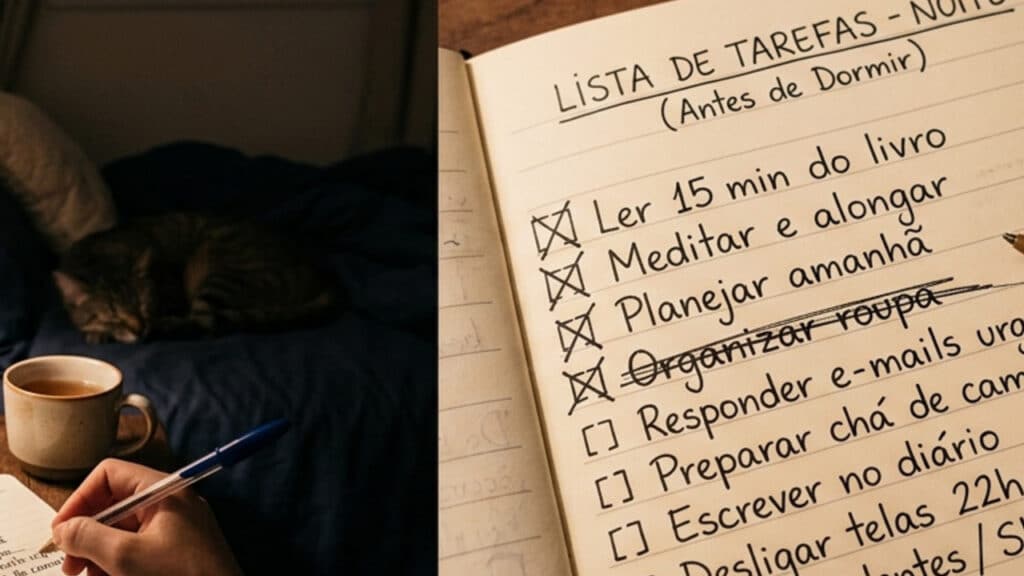 LISTA DE TAREFAS - NOITE
(Antes de Dormir)
Ler 15 min do livro
Meditar e alongar
Planejar amanhã
Organizar roupa
Responder e-mails urg
Preparar chá de cam
Escrever no diário
Desligar telas 22h